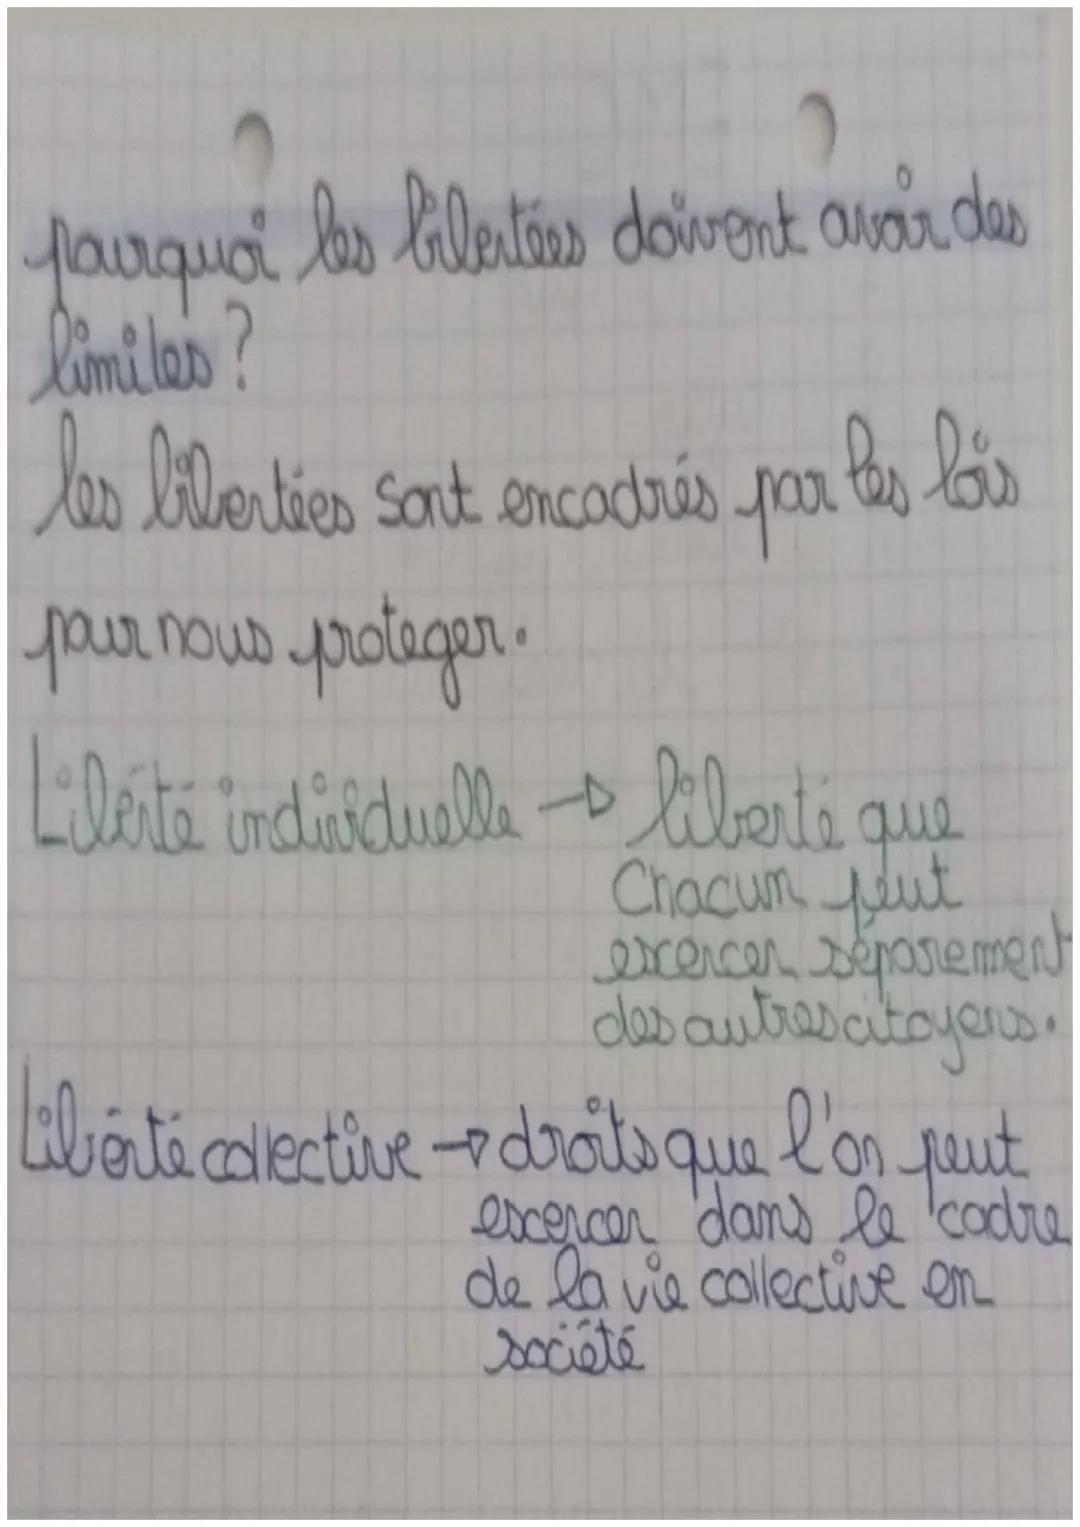 pourquoi les libertées doivent avoir des
limites ?
les libertées sont encadrés par les lois
pour nous proteger.
Liberté individuelle → liberté que
Chacun peut
excercer séparement
des autres citoyens.
Liberté collective → droits que l'on peut
excercer dans le cadre
de la vie collective en
société